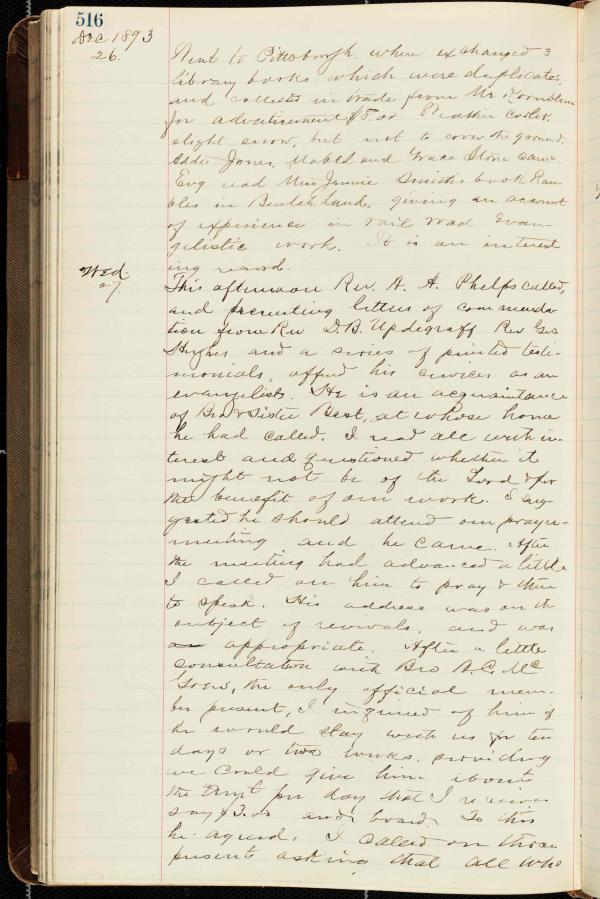 516
Dec 1893
26.
Went to Pittsburgh where exchanged 3
library books which were duplicates,
and collected in trade from Mr
for advertisement $5.00 Weather cooler,
slight snow, but not to cover the ground.
Addie Jones, Mabel and Grace Stone came.
Evg read Miss Jennie Smith's book Ram-
bles in Beulah Land, giving an account
of experience in rail road Evan-
gelistic work. It is an interest
ing record.
Wed.
27.
This afternoon Rev. H. A. Phelps called,
and presenting letters of commenda-
tion from Rev D. B. Updegraff Rev Geo
Hughes and a series of printed testi-
monials, offered his services as an
evangelist. He is an acquaintance
of Bro & Sister Best, at whose home
he had called. I read all with in-
terest and questioned whether it
might not be of the Lord & for
the benefit of our work. I sug-
gested he should attend our prayer-
meeting and he came. After
the meeting had advanced a little
I called on him to pray & then
to speak. His address was on the
subject of revivals, and was
appropriate. After a little
consultation with Bro A. C. Mc
Grew, the only official mem-
ber present, I inquired of him if
he would stay with us for ten
days or two weeks, providing
we could give him about
the amt per day that I receive
say $3.00 and board. To this
he agreed. I called on those
present asking that all who